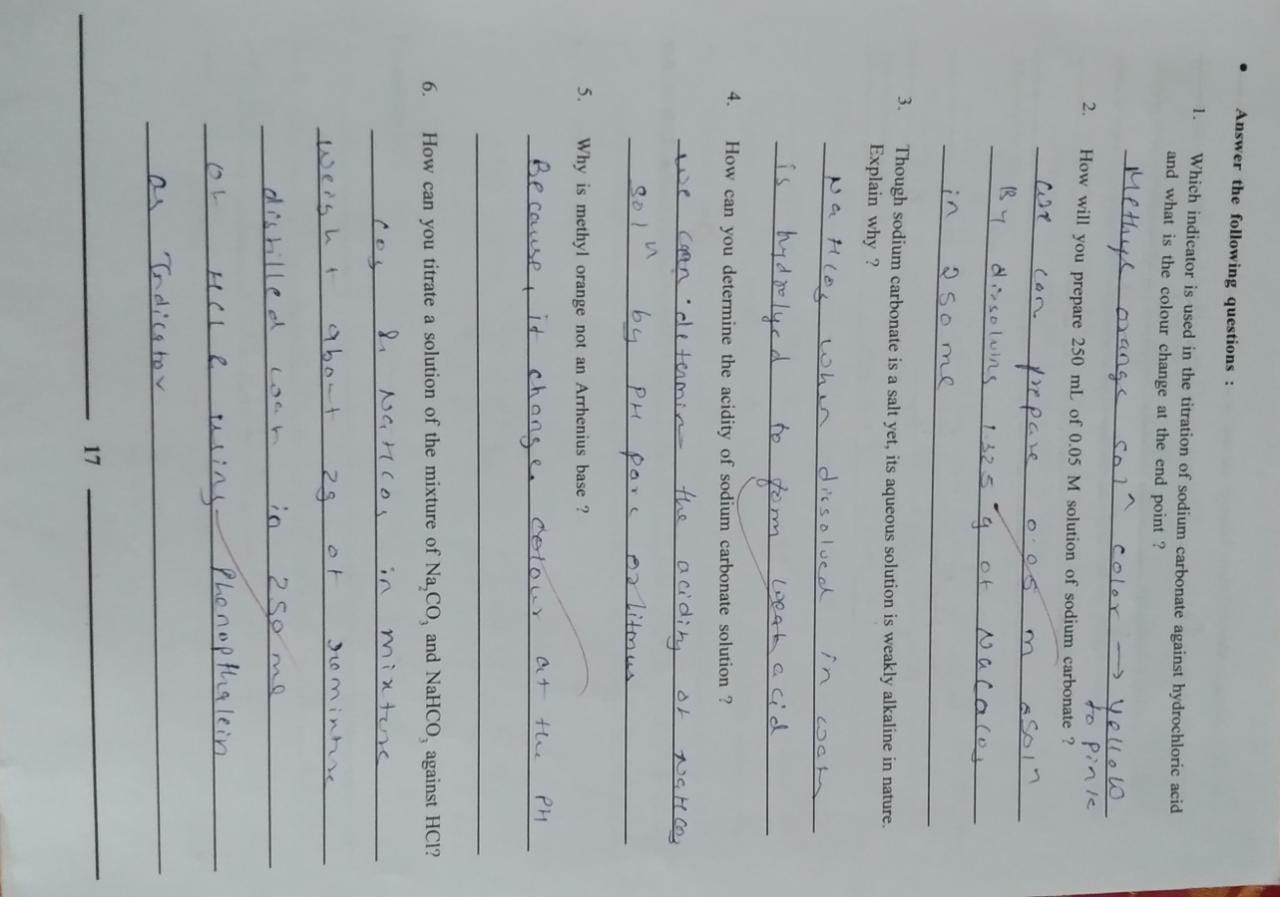 • Answer the following questions :
1. Which indicator is used in the titration of sodium carbonate against hydrochloric acid
and what is the colour change at the end point ?
Methyl orange solⁿ color → yellow
to pink
2. How will you prepare 250 mL of 0.05 M solution of sodium carbonate ?
we can prepare 0.05 m solⁿ
By dissolving 1.325 g of
in 250 ml
3. Though sodium carbonate is a salt yet, its aqueous solution is weakly alkaline in nature.
Explain why ?
NaHCO₃ when dissolved in
is hydrolyed to form weak acid
4. How can you determine the acidity of sodium carbonate solution ?
we can determin the acidity of NaHCO₃
solⁿ by PH or litmus
5. Why is methyl orange not an Arrhenius base ?
Because, it change colour at the PH
6. How can you titrate a solution of the mixture of Na₂CO₃ and NaHCO₃ against HCl?
co₃ & NaHCO₃ in mixture
weight about 2g of
distilled in 250 ml
of HCl & using Phenopthalein
as Indicator
17